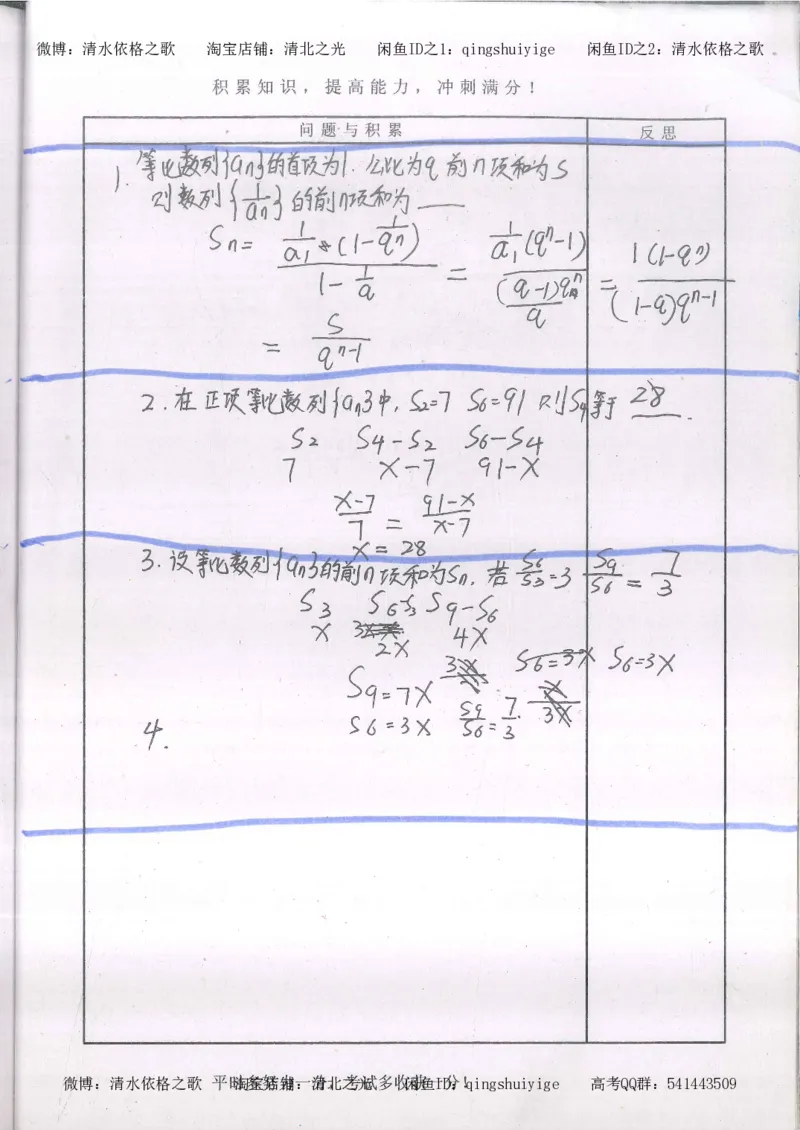 微博：清水依格之歌 淘宝店铺：清北之光 闲鱼ID之1：qingshuiyige 闲鱼ID之2：清水依格之歌
积累知识，提高能力，冲刺满分！
问题与积累 反思
1. 等比数列{an}的首项为1.公比为q 前n项和为S
则数列{1/an}的前n项和为____
Sn = (1/a1 * (1-1/q^n)) / (1-1/q) = (1/a1 (q^n-1)) / ((q-1)q^n / q) = 1(1-q^n) / (1-q)q^(n-1)
= S/q^(n-1)
2. 在正项等比数列{an}中, S2=7 S6=91 则S4等于 28 .
S2 S4-S2 S6-S4
7 x-7 91-x
(x-7)/7 = (91-x)/(x-7)
x=28
3. 设等比数列{an}的前n项和为Sn, 若 S6/S3=3 S9/S6 = 7/3
S3 S6-S3 S9-S6
x 2x 4x
S6=3x S6=3x
S9=7x
S6=3x S9/S6=7/3.
4.
微博：清水依格之歌 淘宝店铺：清北之光 闲鱼ID：qingshuiyige 高考QQ群：541443509